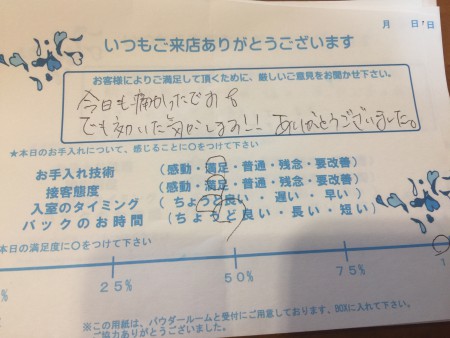 月 日
いつもご来店ありがとうございます
お客様によりご満足して頂くために、厳しいご意見をお聞かせ下さい。
今日も痛かったです
でも効いた気がします!! ありがとうございました。
★本日のお手入れについて、感じることに〇をつけて下さい
お手入れ技術 (感動・満足・普通・残念・要改善)
接客態度 (感動・満足・普通・残念・要改善)
入室のタイミング (ちょうど良い・遅い・早い)
パックのお時間 (ちょうど良い・長い・短い)
本日の満足度に〇をつけて下さい
% 25% 50% 75% 1
※この用紙は、パウダールームと受付にご用意しております、BOXに入れて下さい。
ご協力ありがとうございました。